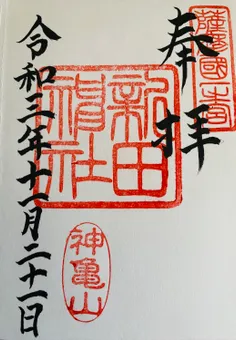 奉拝
新田
神社
神亀山
令和三年十一月二十一日